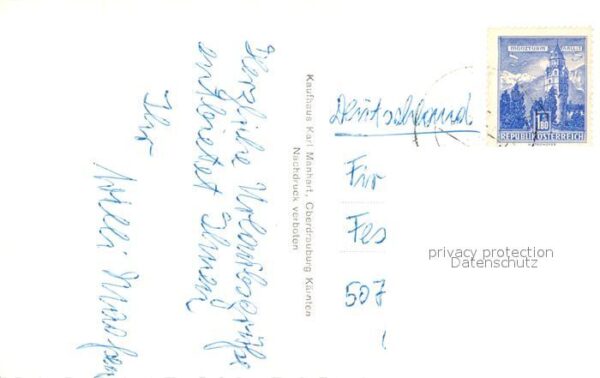 Herzliche Urlaubsgrüße
entbietet Ihnen
Ihr
Willi
Kaufhaus Karl Manhart, Oberdrauburg Kärnten
Nachdruck verboten
MÜNZTURM HALL I. T.
1.80
REPUBLIK ÖSTERREICH
Deutschland
Für
Fes
507
privacy protection
Datenschutz